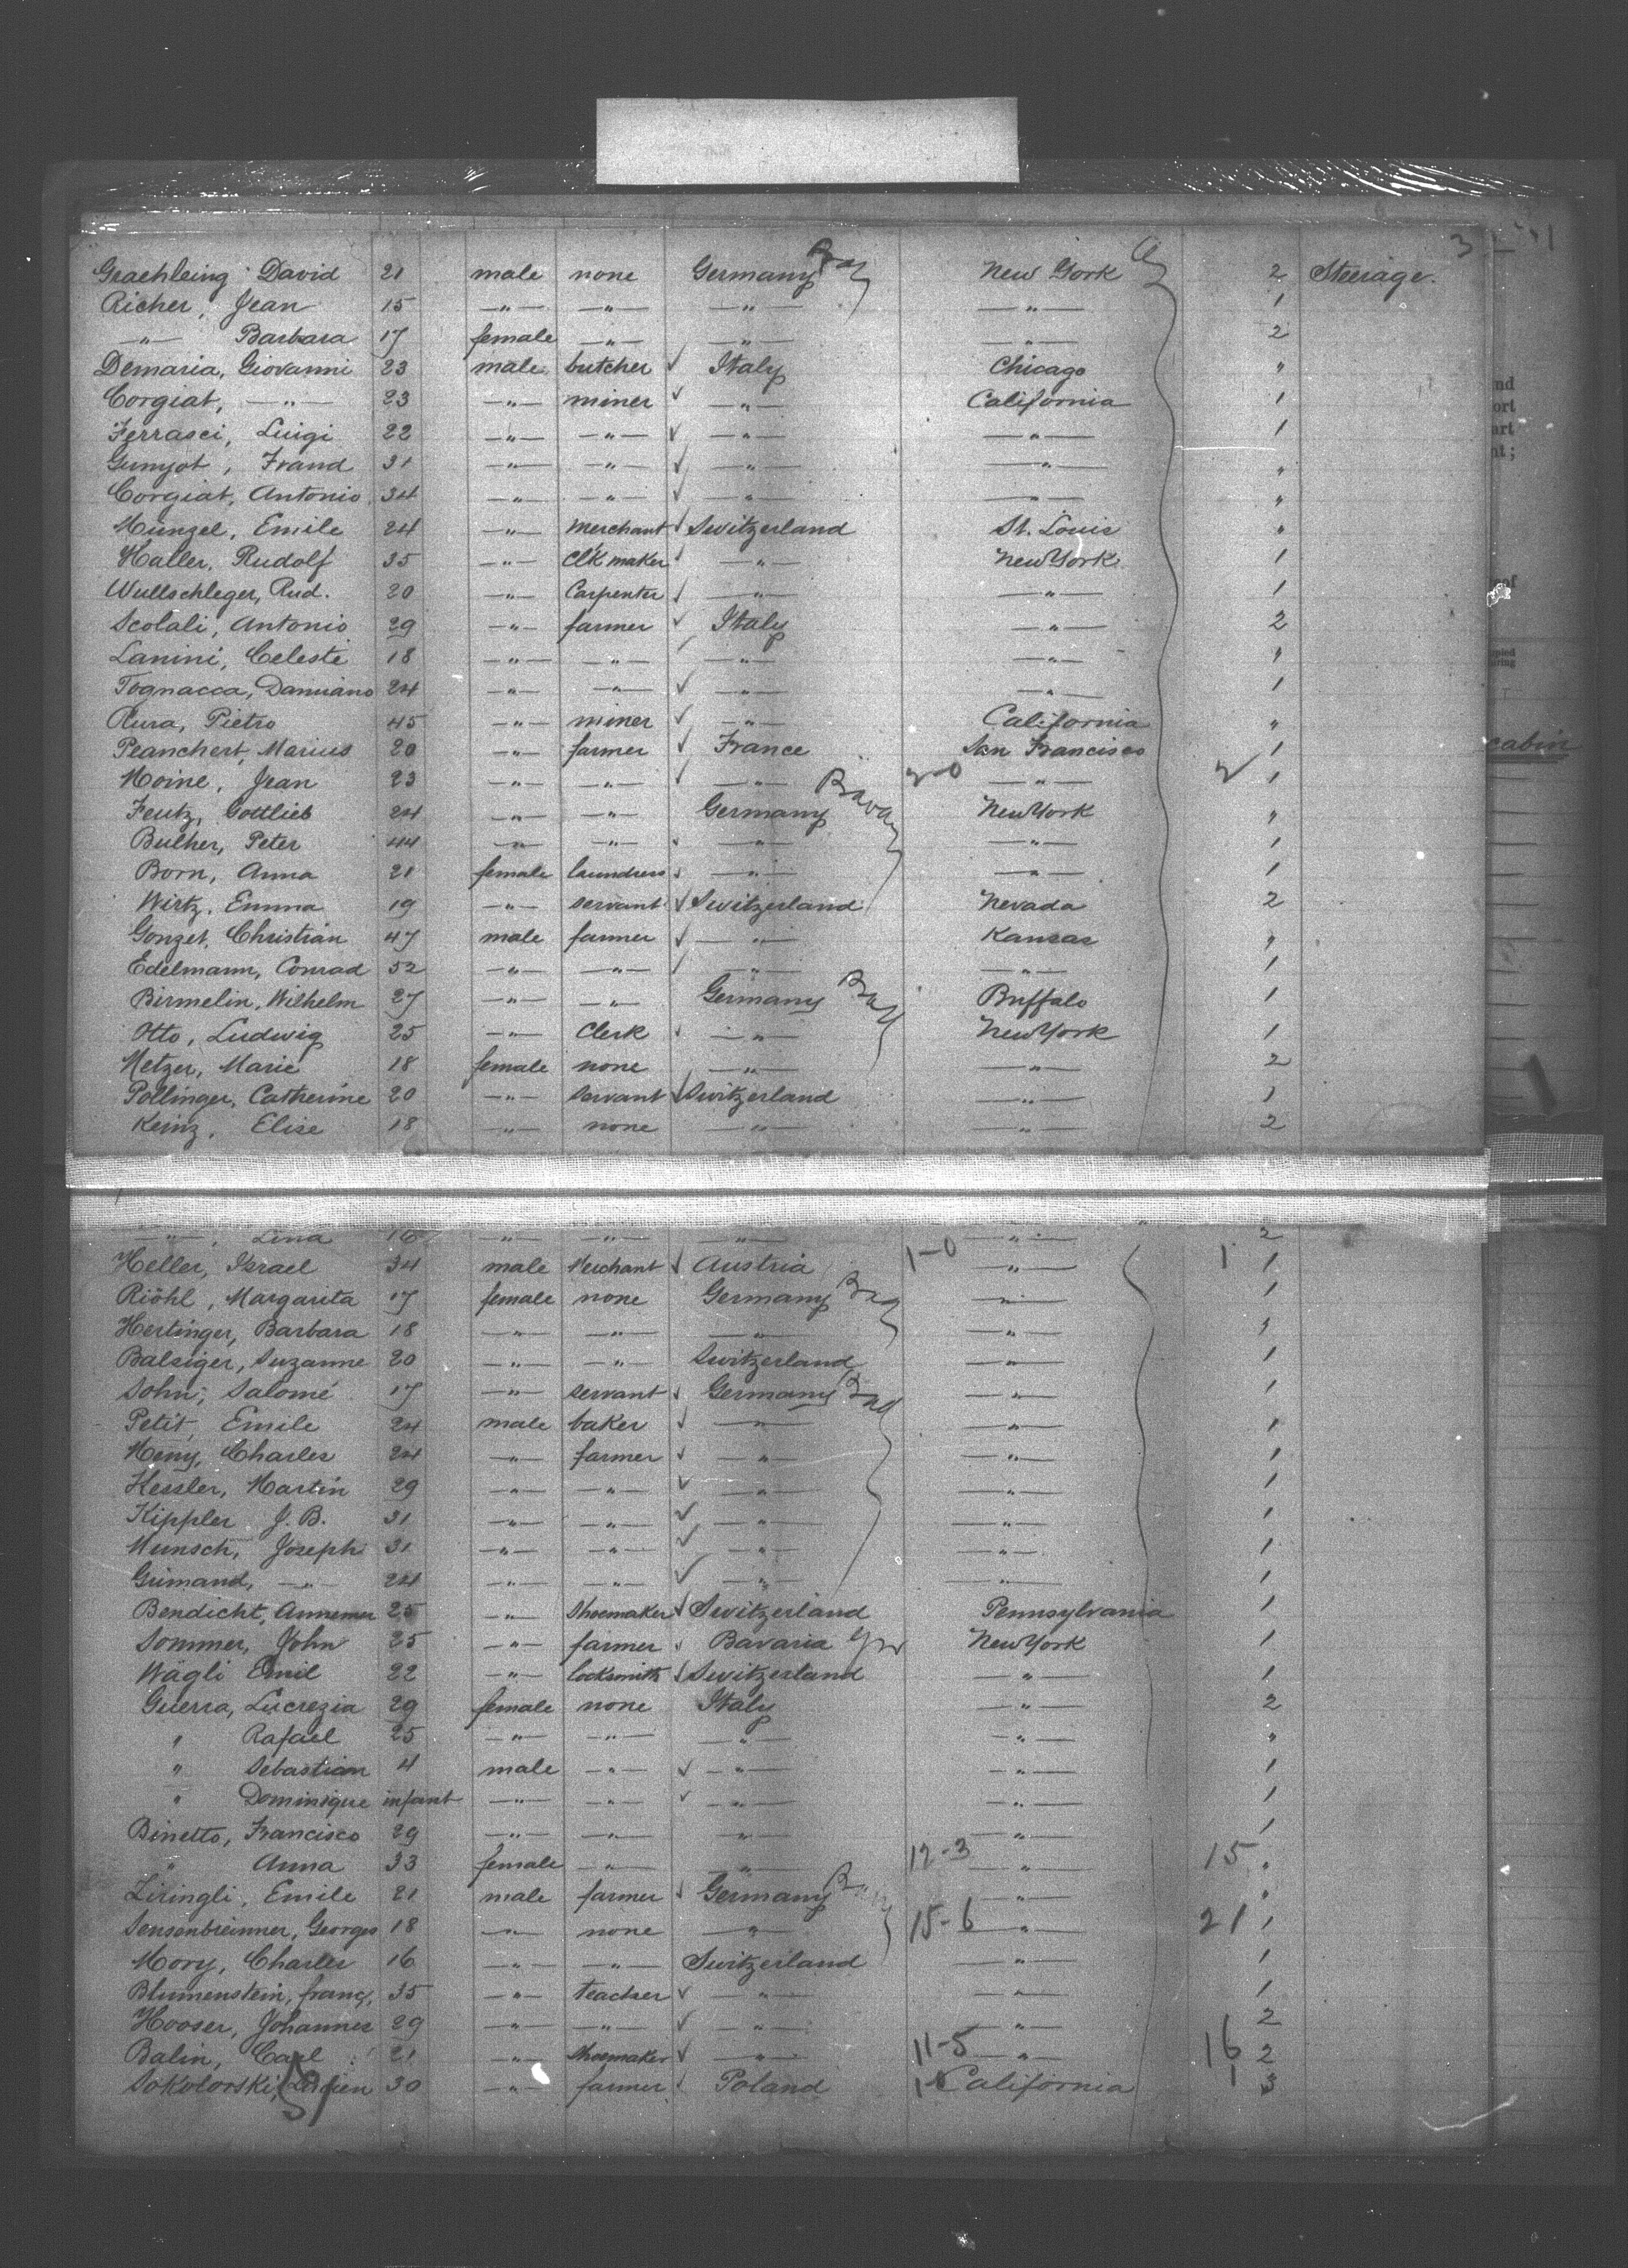 3
Graehling David 21 male none Germany Bay New York 2 Steerage.
Richer, Jean 15 —"— —"— —"— —"— 1
—"— Barbara 17 female —"— —"— —"— 2
Demaria, Giovanni 23 male butcher ✓ Italy Chicago "
Corgiat, —"— 23 —"— miner ✓ —"— California 1
Ferrasci, Luigi 22 —"— —"— ✓ —"— —"— 1
Gunyot, Frand 31 —"— —"— ✓ —"— —"— "
Corgiat, Antonio 34 —"— —"— ✓ —"— —"— "
Münzel, Emile 24 —"— Merchant ✓ Switzerland St. Louis "
Haller, Rudolf 35 —"— Clk maker ✓ —"— New York 1
Wullschleger, Rud. 20 —"— Carpenter ✓ —"— —"— 1
Scolali, Antonio 29 —"— farmer ✓ Italy —"— 2
Lanini, Celeste 18 —"— —"— —"— —"— "
Tognacca, Damiano 24 —"— —"— ✓ —"— —"— 1
Rura, Pietro 45 —"— miner ✓ —"— California "
Planchert, Marius 20 —"— farmer ✓ France San Francisco 1
cabin
Moine, Jean 23 —"— —"— ✓ —"— 2-0 —"— 2 1
Feutz, Gottlieb 24 —"— —"— Germany Bavay New York "
Bulher, Peter 44 —"— —"— ✓ —"— —"— 1
Born, Anna 21 female laundress ✓ —"— —"— 1
Wirtz, Emma 19 —"— servant ✓ Switzerland Nevada 2
Gonzet, Christian 47 male farmer ✓ —"— Kansas "
Edelmann, Conrad 52 —"— —"— ✓ —"— —"— 1
Birmelin, Wilhelm 27 —"— —"— Germany Bay Buffalo 1
Otto, Ludwig 25 —"— Clerk ✓ —"— New York 1
Metzer, Marie 18 female none —"— —"— 2
Pollinger, Catherine 20 —"— servant ✓ Switzerland —"— 1
Keinz, Elise 18 —"— none —"— —"— 2
—"—, Lina 16 —"— —"— —"— —"— 2
Heller, Israel 34 male Merchant ✓ Austria 1-0 —"— 1 1
Riöhl, Margarita 17 female none Germany Bay —"— 1
Hertinger, Barbara 18 —"— —"— —"— —"— 1
Balsiger, Suzanne 20 —"— —"— Switzerland —"— 1
Sohn, Salomé 17 —"— servant ✓ Germany Bay —"— 1
Petit, Emile 24 male baker ✓ —"— —"— 1
Meny, Charles 24 —"— farmer ✓ —"— —"— 1
Kessler, Martin 29 —"— —"— ✓ —"— —"— 1
Kippler J. B. 31 —"— —"— ✓ —"— —"— 1
Munsch, Joseph 31 —"— —"— ✓ —"— —"— 1
Grimand, —"— 24 —"— —"— ✓ —"— —"— 1
Bendicht, Annemer 25 —"— Shoemaker ✓ Switzerland Pennsylvania 1
Sommer, John 25 —"— farmer ✓ Bavaria New York 1
Wägli Emil 22 —"— locksmith ✓ Switzerland —"— 1
Guerra, Lucrezia 29 female none Italy —"— 2
" Rafael 25 —"— —"— —"— —"— "
" Sebastian 4 male —"— ✓ —"— —"— 1
" Dominique infant —"— —"— ✓ —"— —"— 1
Binetto, Francisco 29 —"— —"— —"— —"— 1
" Anna 33 female —"— —"— 12-3 —"— 15 "
Ziringli, Emile 21 male farmer ✓ Germany —"— "
Sensenbrenner, Georges 18 —"— none —"— 15-6 —"— 21 1
Mory, Charles 16 —"— —"— Switzerland —"— 1
Blumenstein, franç. 35 —"— teacher ✓ —"— —"— 1
Hooser, Johannes 29 —"— —"— ✓ —"— —"— 2
Balin, Carl 21 —"— Shoemaker ✓ —"— 11-5 —"— 16 2
Sokolorski, Lucien 30 —"— farmer ✓ Poland 1-0 California 1 3